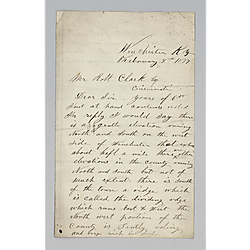 Winchester Ky
February 8th 1877
Mr Robt Clark Esq
Cincinnati
Dear Sir yours of 6th
inst at hand and contents noted
In reply I would say there
is a gentle elevation running
North and South on the west
side of Winchester that extends
about half a mile there other
elevations in the county running
North and South but not to
much extent there is South
of the town a ridge which
is called the dividing ridge
which runs East &
North west portion of the
County is gently rolling
and